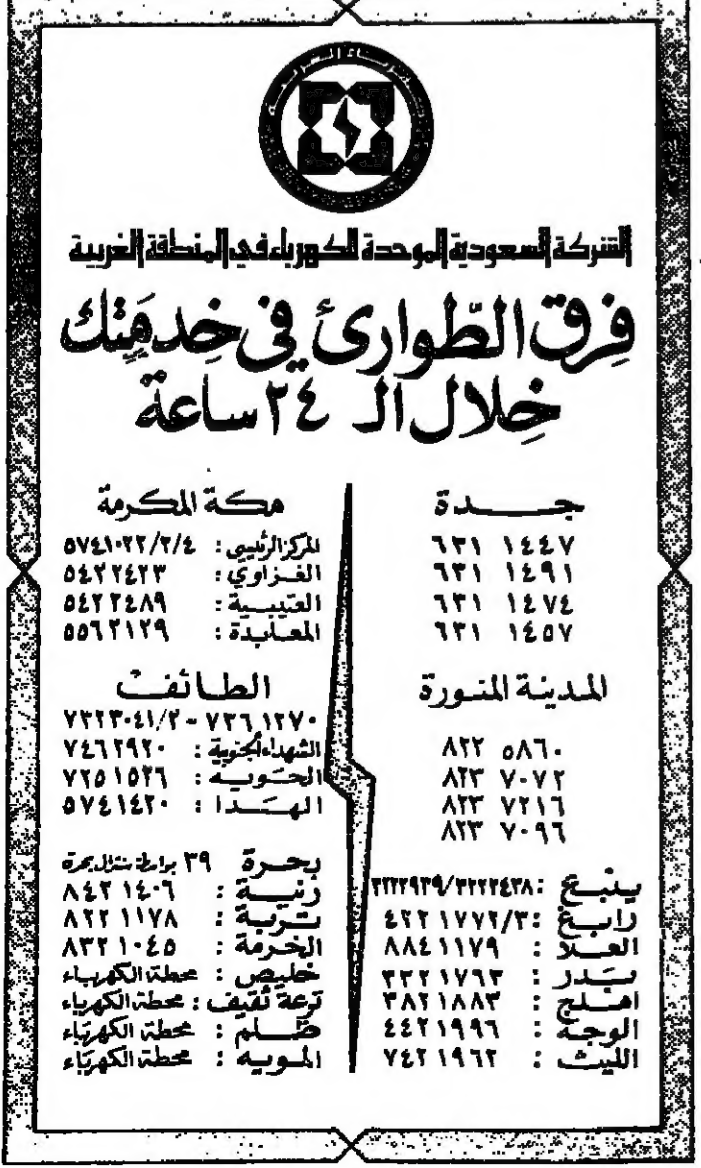 الشركة السعودية الموحدة للكهرباء في المنطقة الغربية
فِرق الطّوارئ في خِدمَتِك
خِلال الـ ٢٤ ساعة
جـــدة
٦٣١ ١٤٤٧
٦٣١ ١٤٩١
٦٣١ ١٤٧٤
٦٣١ ١٤٥٧
المدينة المنورة
٨٢٢ ٥٨٦٠
٨٢٣ ٧٠٧٢
٨٢٣ ٧٢١٦
٨٢٣ ٧٠٩٦
ينبع : ٣٢٢٢٩٣٩/٣٢٢٢٤٣٨
رابغ : ٤٢٢١٧٧٢/٣
العلا : ٨٨٤١١٧٩
بدر : ٣٣٢١٧٦٣
املج : ٣٨٢١٨٨٣
الوجه : ٤٤٢١٩٩٦
الليث : ٧٤٢١٩٦٢
مكة المكرمة
المركز الرئيسي : ٥٧٤١٠٢٢/٢/٤
الغزاوي : ٥٤٢٢٤٢٣
العتيبية : ٥٤٢٢٤٨٩
المعابدة : ٥٥٦٢١٢٩
الطائف
٧٣٦١٢٧٠ - ٧٣٢٣٠٤١/٢
الشهداء الجنوبية : ٧٤٦٢٩٢٠
الحويه : ٧٢٥١٥٣٦
الهدا : ٥٧٤١٤٢٠
بحرة ٣٩ بواسطة سنترال بحرة
رنية : ٨٤٢١٤٠٦
تربة : ٨٢٢١١٧٨
الخرمة : ٨٣٢١٠٤٥
خليص : محطة الكهرباء
ترعة ثقيف : محطة الكهرباء
ظلم : محطة الكهرباء
المويه : محطة الكهرباء